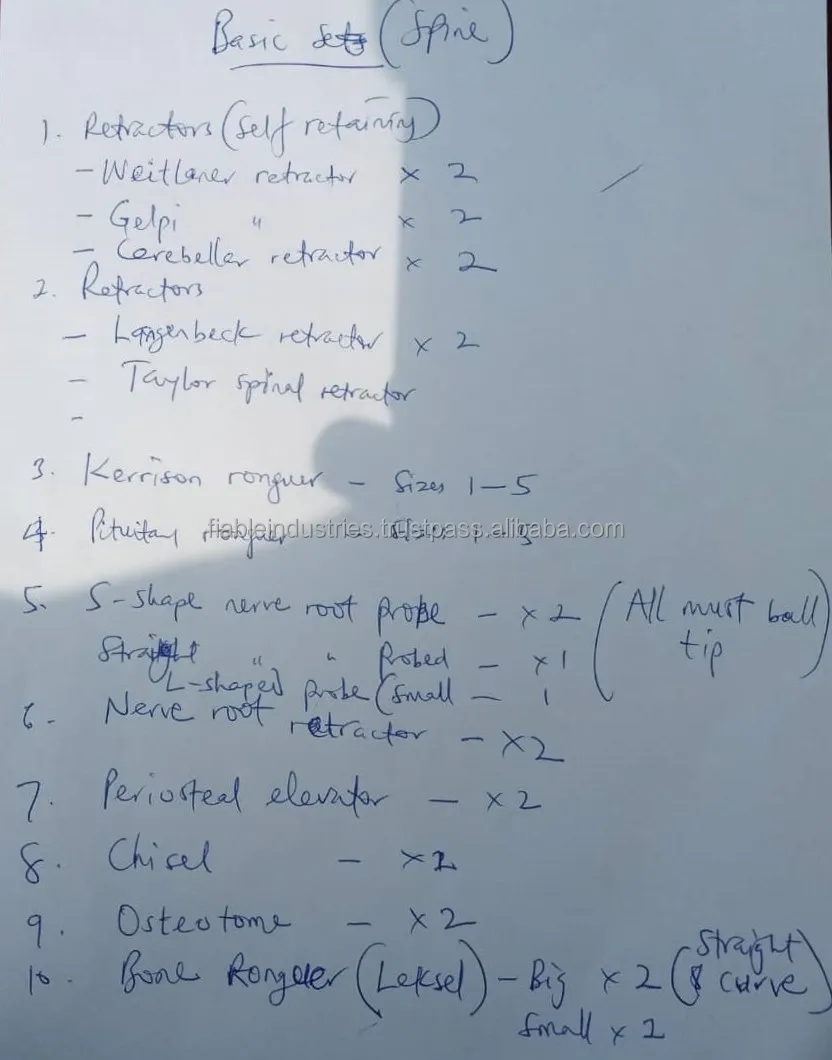 Basic Set (Spine)
1. Retractors (Self retaining)
- Weitlaner retractor × 2
- Gelpi " × 2
- Cerebeller retractor × 2
2. Retractors
- Langenbeck retractor × 2
- Taylor spinal retractor
-
3. Kerrison ronguer - Sizes 1-5
4. Pituitary ronguer -
fiableindustries.trustpass.alibaba.com
5. S-shape nerve root probe - ×2 (All must ball
tip)
Straight " " Probed - ×1
L-shaped probe (small - 1
6. Nerve root
retractor - ×2
7. Periosteal elevator - ×2
8. Chisel - ×2
9. Osteotome - ×2
10. Bone Ronguer (Leksel) - Big × 2 (Straight
& curve)
Small × 2